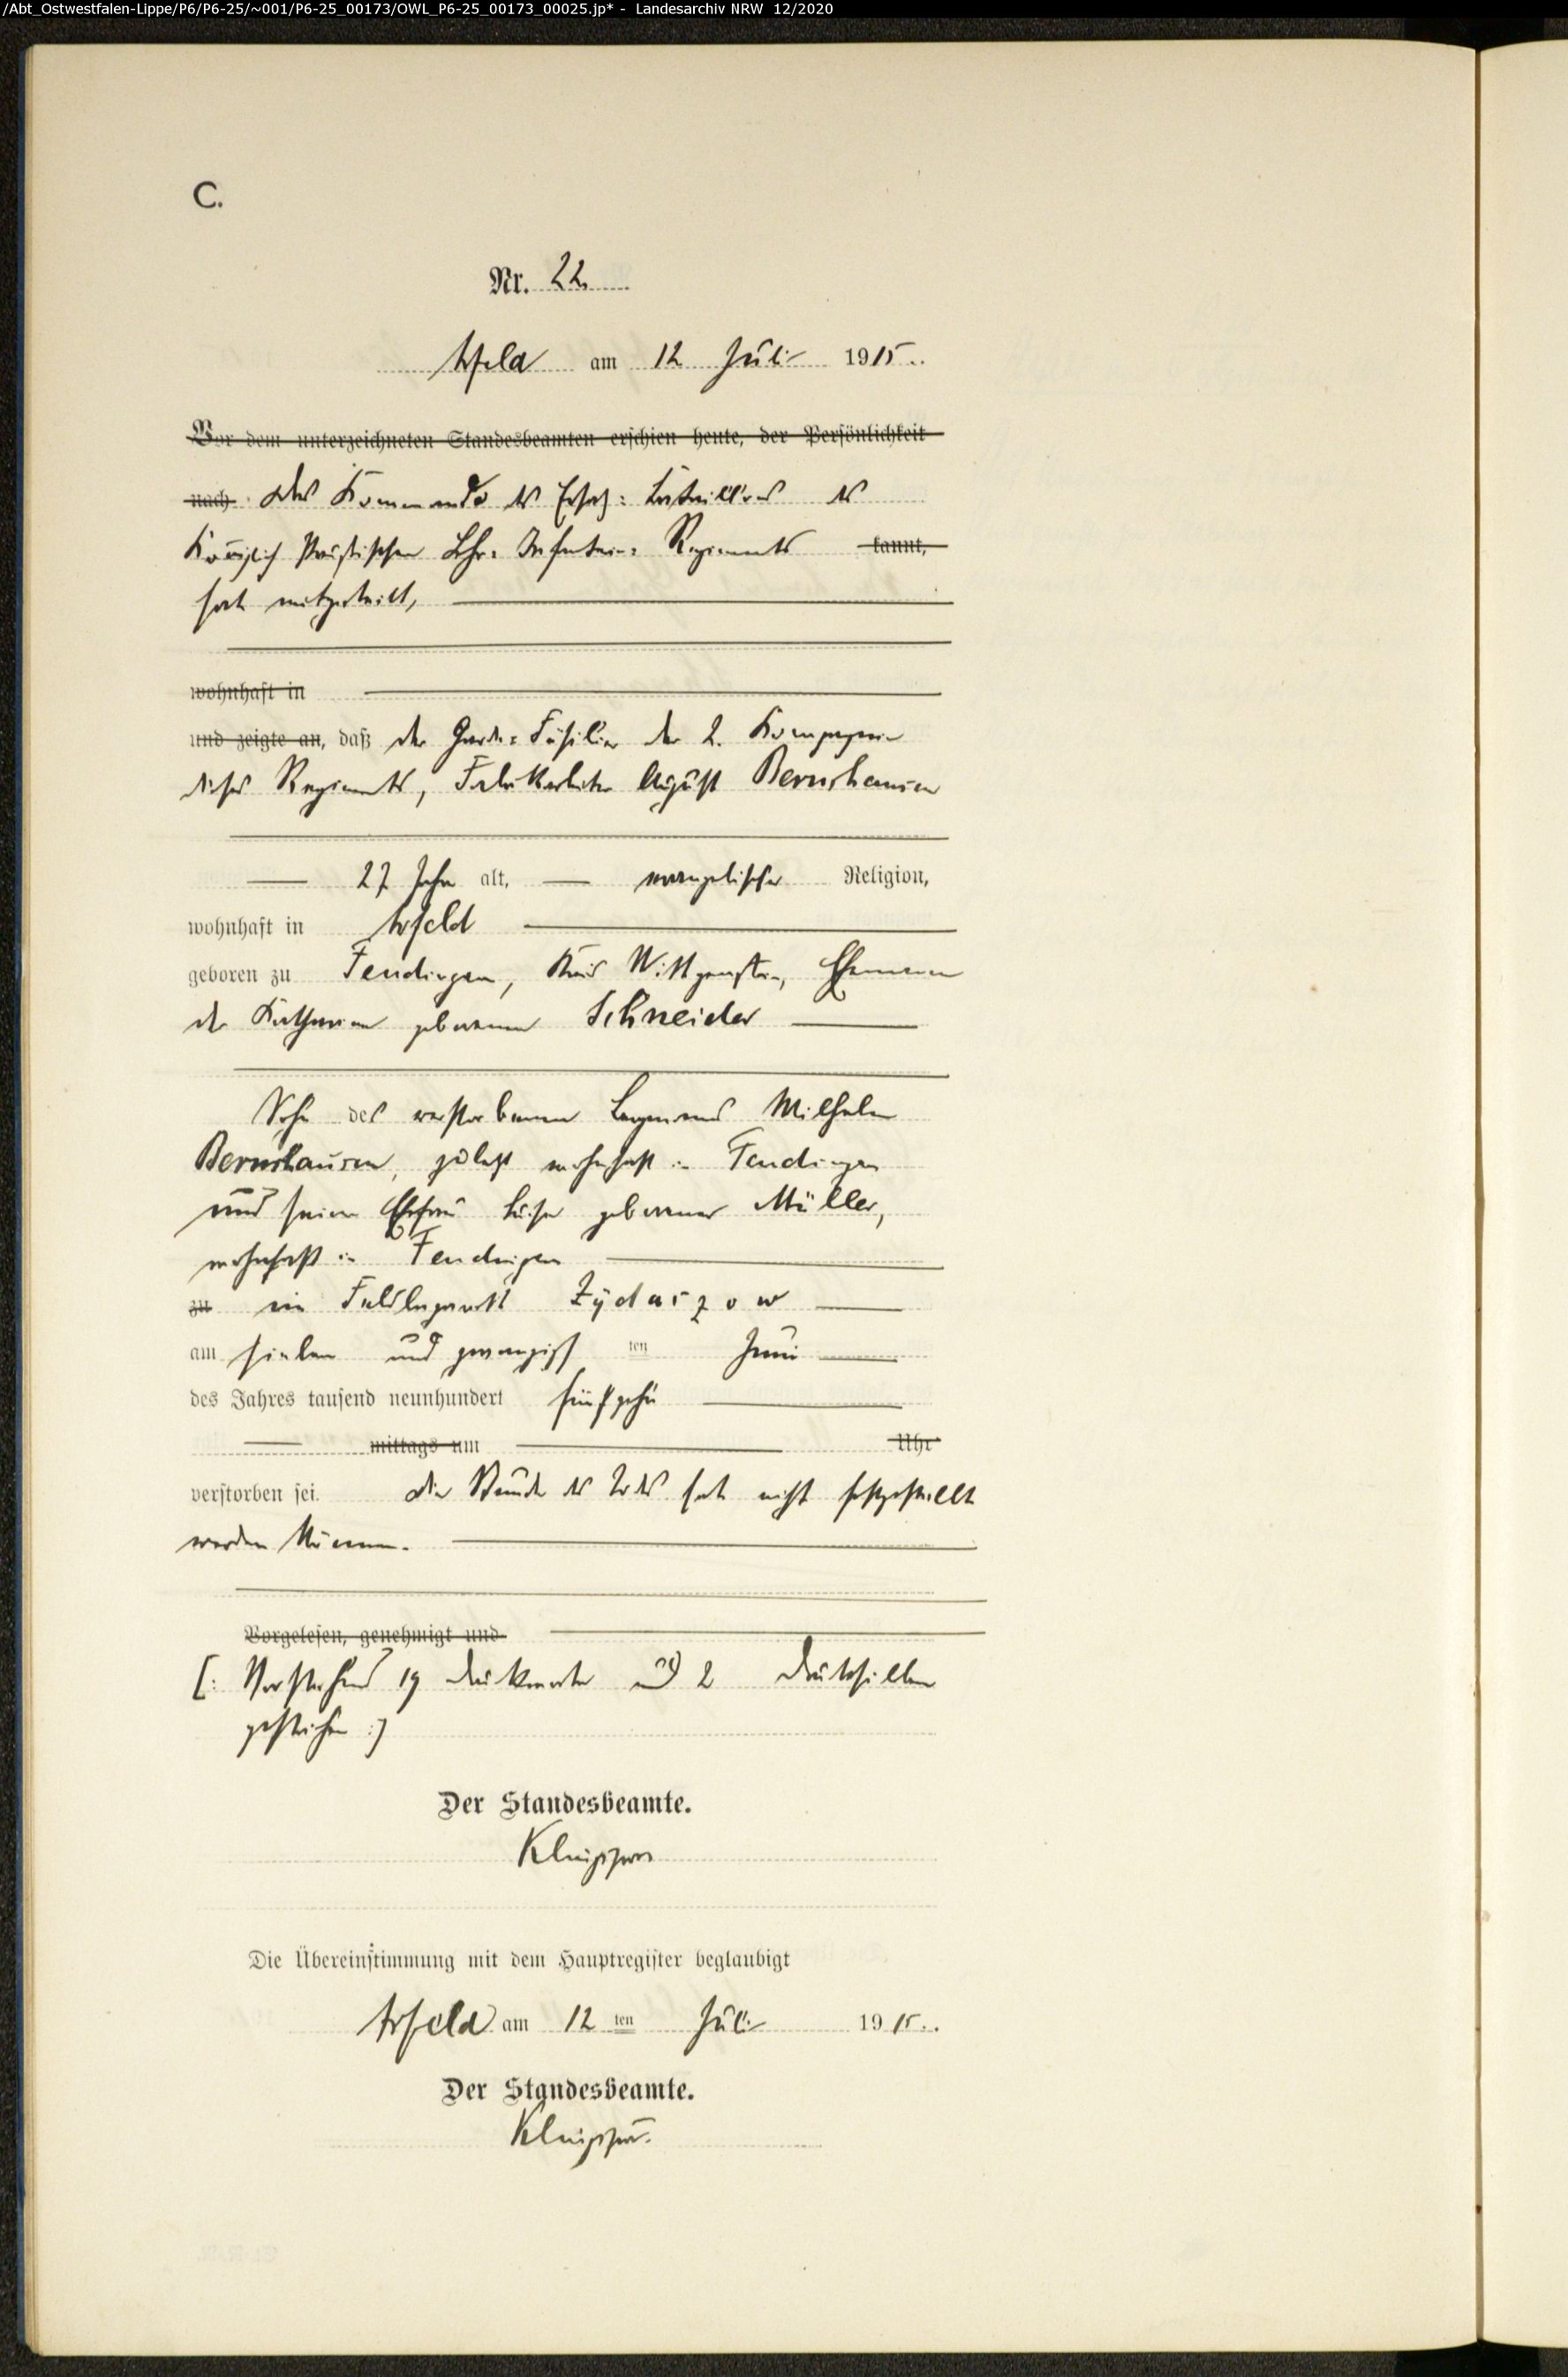 /Abt_Ostwestfalen-Lippe/P6/P6-25/~001/P6-25_00173/OWL_P6-25_00173_00025.jp* - Landesarchiv NRW 12/2020
C.
Nr. 22.
Arfeld am 12 Juli 1915..
Vor dem unterzeichneten Standesbeamten erschien heute, der Persönlichkeit
nach das Kommando des Ersatz: Bataillons des
Königlich Preußischen Lehr: Infanterie: Regiments kannt,
hat mitgeteilt,
wohnhaft in
und zeigte an, daß der Garde: Füsilier der 2. Kompagnie
dieses Regiments, Fabrikarbeiter August Bernshausen
27 Jahre alt, evangelischer Religion,
wohnhaft in Arfeld
geboren zu Feudingen, Kreis Wittgenstein, Ehemann
der Katharine geborenen Schneider
Sohn des verstorbenen Bergmanns Wilhelm
Bernshausen, zuletzt wohnhaft in Feudingen
und seiner Ehefrau Luise geborener Müller,
wohnhaft in Feudingen
zu im Feldlazarett Zydaszow
am sieben und zwanzigst ten Juni
des Jahres tausend neunhundert fünfzehn
mittags um Uhr
verstorben sei. Die Stunde des Todes hat nicht festgestellt
werden können.
Vorgelesen, genehmigt und
[: Vorstehend 19 Druckworte und 2 Drucksilben
gestrichen :]
Der Standesbeamte.
Die Übereinstimmung mit dem Hauptregister beglaubigt
Arfeld am 12 ten Juli 1915..
Der Standesbeamte.